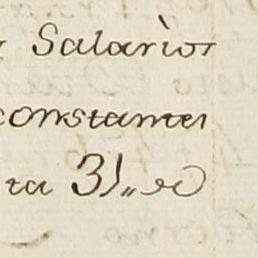 Salarios
constantes
ta 3